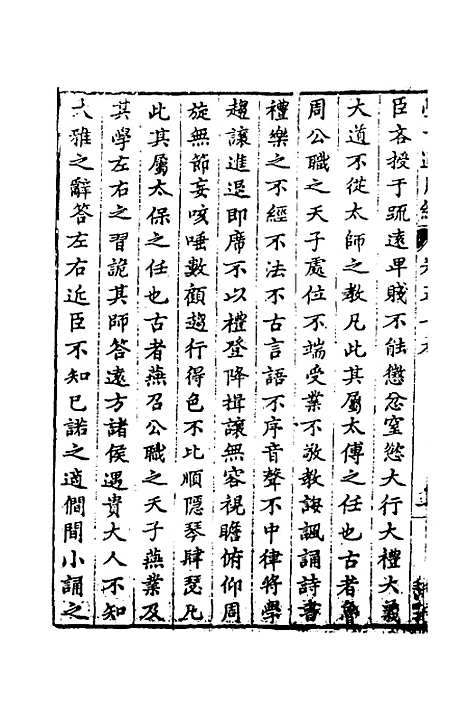 臣吝授于疏遠卑賤不能懲忿窒慾大行大禮大義
大道不從太師之教凡此其屬太傅之任也古者魯
周公職之天子處位不端受業不敬教誨諷誦詩書
禮樂之不經不法不古言語不序音聲不中律將學
趨讓進退即席不以禮登降揖讓無容視瞻俯仰周
旋無節妄咳唾數顧趨行得色不比順隱琴肆瑟凡
此其屬太保之任也古者燕召公職之天子燕業及
其學左右之習詭其師答遠方諸侯遇貴大人不知
大雅之辭答左右近臣不知已諾之適僩聞小誦之